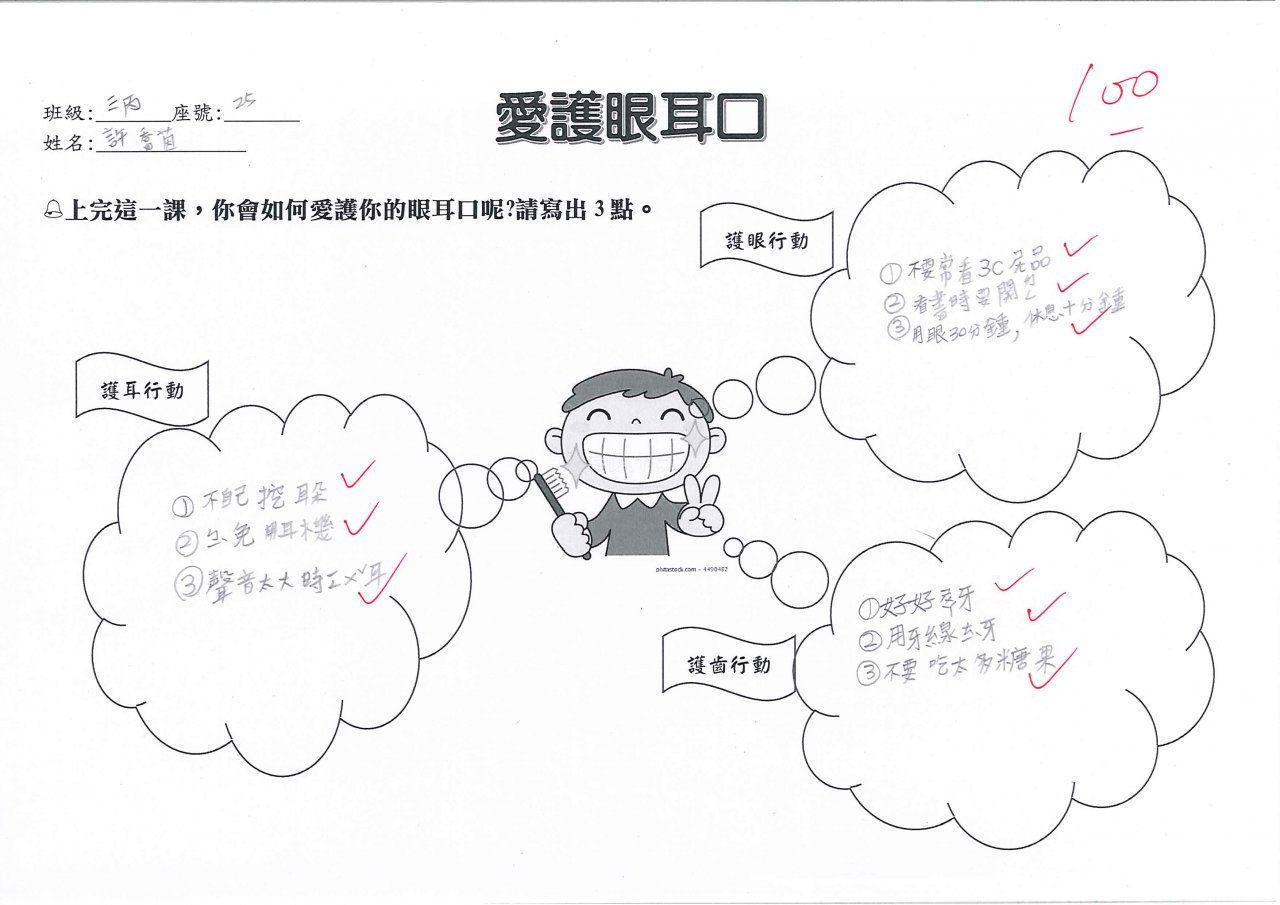 愛護眼耳口
100
班級:三丙 座號:25
姓名:許喬茵
上完這一課，你會如何愛護你的眼耳口呢?請寫出3點。
護眼行動
①不要常看3C產品
②看書時要開ㄉㄥ
③用眼30分鐘，休息十分鐘
護耳行動
①不自己挖耳朵
②ㄅㄧˋ免用耳機
③聲音太大時ㄓㄜ耳
pixtastock.com - 4490482
護齒行動
①好好刷牙
②用牙線去牙
③不要吃太多糖果